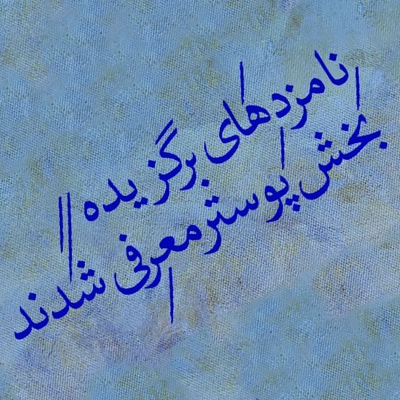 نامزدهای برگزیده
بخش پوستر معرفی شدند